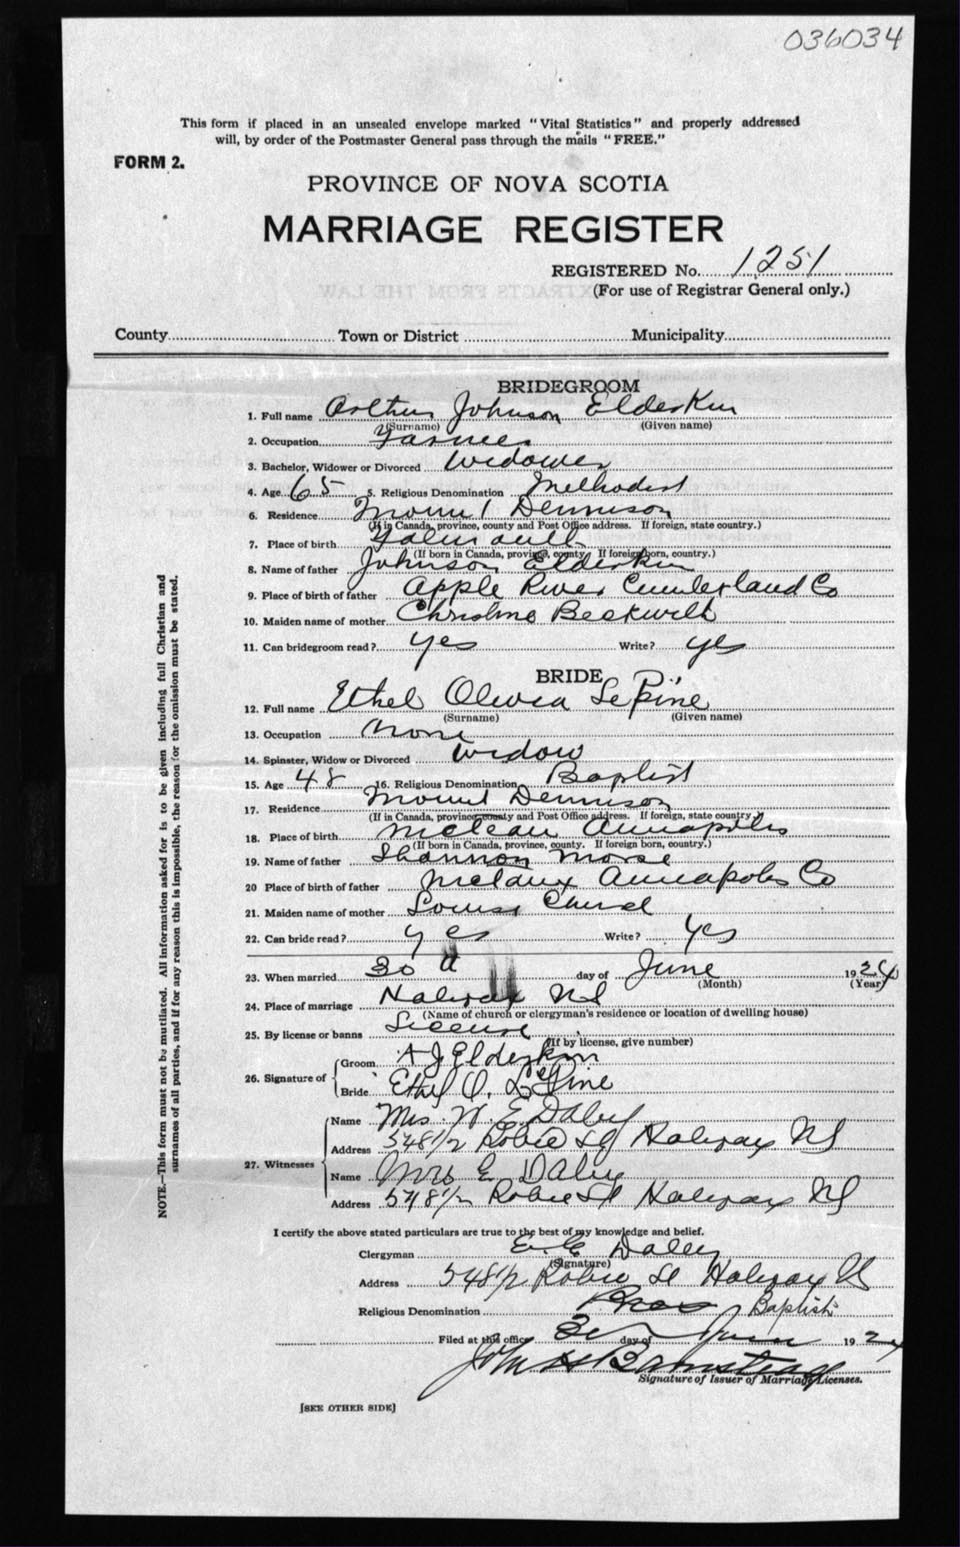 036034
This form if placed in an unsealed envelope marked "Vital Statistics" and properly addressed
will, by order of the Postmaster General pass through the mails "FREE."
FORM 2.
PROVINCE OF NOVA SCOTIA
MARRIAGE REGISTER
REGISTERED No. 1251
(For use of Registrar General only.)
County Town or District Municipality
BRIDEGROOM
1. Full name Arthur Johnson Elderkin
(Surname) (Given name)
2. Occupation Farmer
3. Bachelor, Widower or Divorced Widower
4. Age 65 5. Religious Denomination Methodist
6. Residence Mount Dennison
(If in Canada, province, county and Post Office address. If foreign, state country.)
7. Place of birth Falmouth
(If born in Canada, province, county. If foreign born, country.)
8. Name of father Johnson Elderkin
9. Place of birth of father Apple River Cumberland Co
10. Maiden name of mother Beckwith
11. Can bridegroom read? yes Write? yes
BRIDE
12. Full name Ethel Olivia LePine
(Surname) (Given name)
13. Occupation None
14. Spinster, Widow or Divorced Widow
15. Age 48 16. Religious Denomination Baptist
17. Residence Mount Dennison
(If in Canada, province county and Post Office address. If foreign, state country.)
18. Place of birth Annapolis
(If born in Canada, province, county. If foreign born, country.)
19. Name of father Shannon Morse
20 Place of birth of father Annapolis Co
21. Maiden name of mother Louisa
22. Can bride read? yes Write? yes
23. When married 30 day of June 1924
(Month) (Year)
24. Place of marriage Halifax NS
(Name of church or clergyman's residence or location of dwelling house)
25. By license or banns License
(If by license, give number)
26. Signature of Groom A J Elderkin
Bride Ethel O. LePine
27. Witnesses Name Mrs. W. E Daley
Address 548 1/2 Robie St Halifax NS
Name Mrs E Daley
Address 548 1/2 Robie St Halifax NS
I certify the above stated particulars are true to the best of my knowledge and belief.
Clergyman Daley
(Signature)
Address 548 1/2 Robie St Halifax NS
Religious Denomination Baptist
Filed at this office 30 day of June 1924
John H Barnstead
Signature of Issuer of Marriage Licenses.
[SEE OTHER SIDE]
NOTE.—This form must not be mutilated. All information asked for is to be given including full Christian and
surnames of all parties, and if for any reason this is impossible, the reason for the omission must be stated.